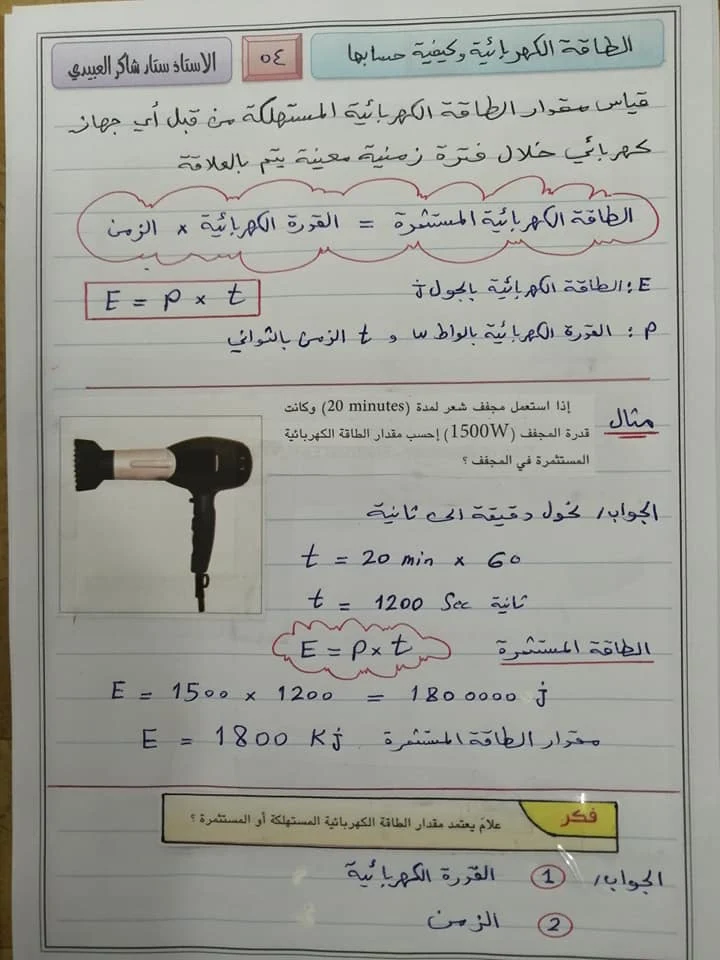 الطاقة الكهربائية وكيفية حسابها
٥٤
الاستاذ ستار شاكر العبيدي
قياس مقدار الطاقة الكهربائية المستهلكة من قبل أي جهاز
كهربائي خلال فترة زمنية معينة يتم بالعلاقة
الطاقة الكهربائية المستثمرة = القدرة الكهربائية × الزمن
E : الطاقة الكهربائية بالجول j
E = P × t
P : القدرة الكهربائية بالواط w و t الزمن بالثواني
مثال
إذا استعمل مجفف شعر لمدة (20 minutes) وكانت
قدرة المجفف (1500W) إحسب مقدار الطاقة الكهربائية
المستثمرة في المجفف ؟
الجواب/ نحول دقيقة الى ثانية
t = 20 min × 60
t = 1200 Sec ثانية
الطاقة المستثمرة E = P × t
E = 1500 × 1200 = 1800000 j
مقدار الطاقة المستثمرة E = 1800 Kj
فكر
علامَ يعتمد مقدار الطاقة الكهربائية المستهلكة أو المستثمرة ؟
الجواب/ 1 القدرة الكهربائية
2 الزمن